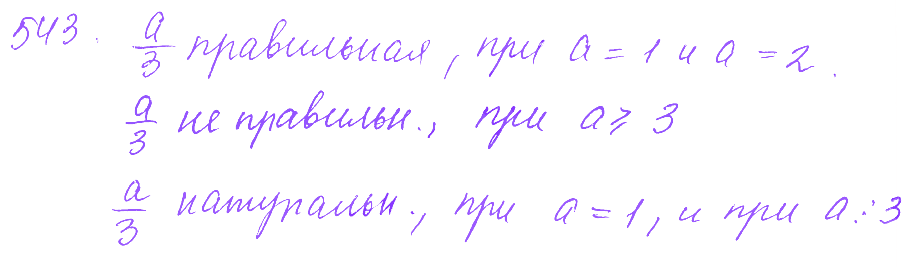 543. a/3 правильная, при a = 1 и a = 2.
a/3 не правильн., при a ⩾ 3
a/3 натуральн., при a = 1, и при a ⋮ 3